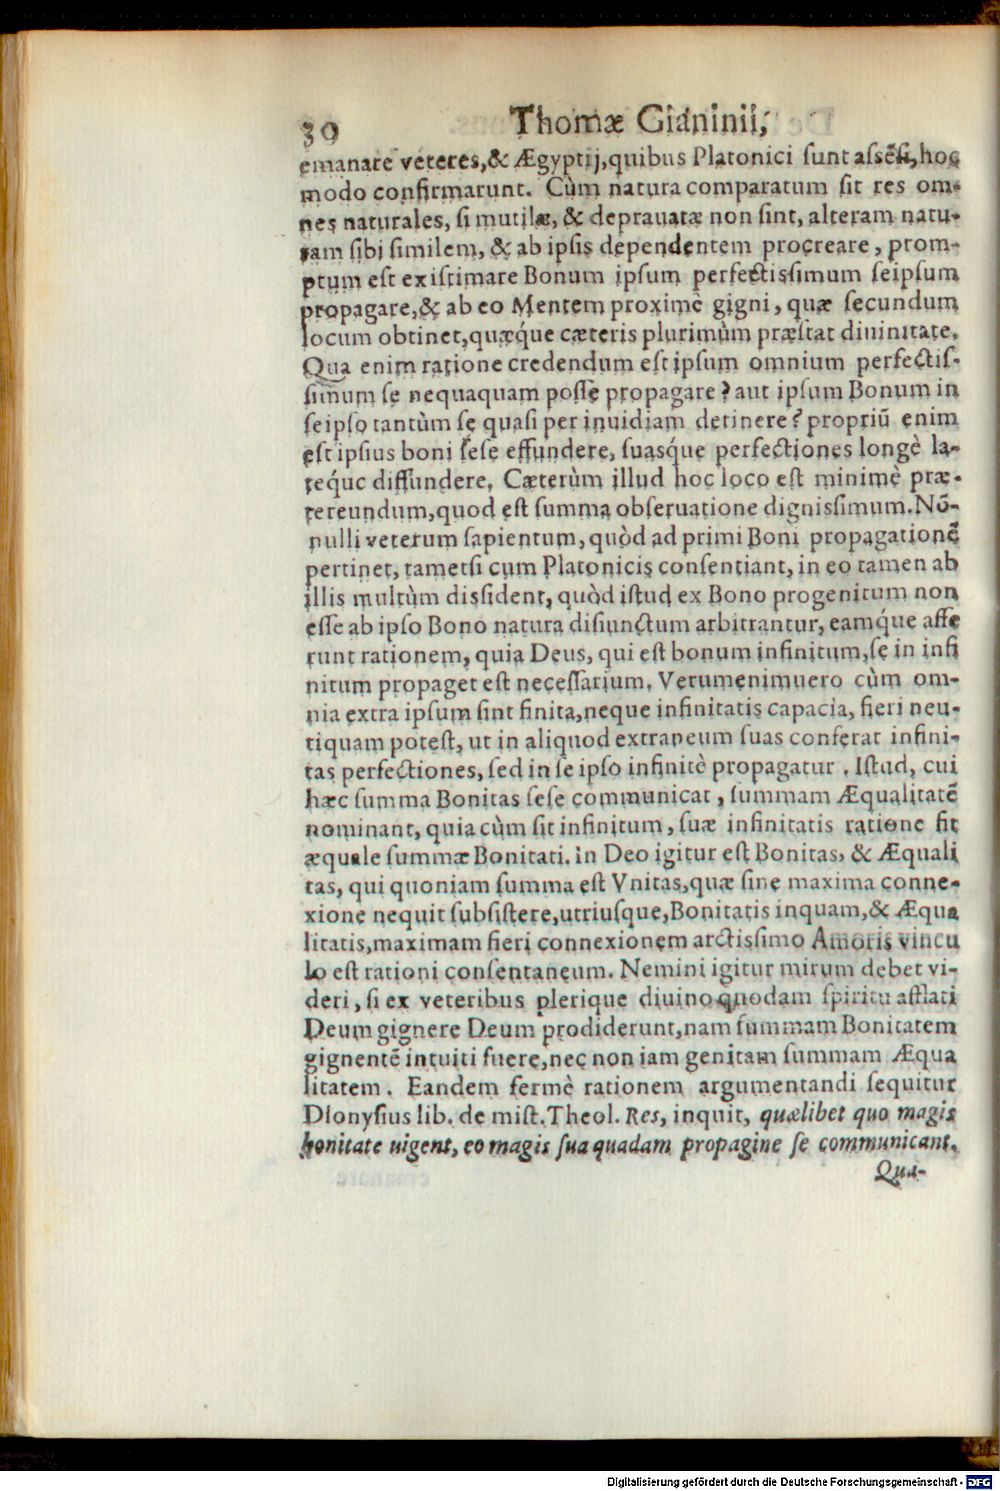 30 Thomæ Gianinii,
emanare veteres, & Ægyptij, quibus Platonici sunt assẽsi, hoc
modo confirmarunt. Cùm natura comparatum sit res om-
nes naturales, si mutilæ, & deprauatæ non sint, alteram natu-
ram sibi similem, & ab ipsis dependentem procreare, prom-
ptum est existimare Bonum ipsum perfectissimum seipsum
propagare, & ab eo Mentem proximè gigni, quæ secundum
locum obtinet, quæq́ue cæteris plurimùm præstat diuinitate.
Qua enim ratione credendum est ipsum omnium perfectis-
simum se nequaquam posse propagare? aut ipsum Bonum in
seipso tantùm se quasi per inuidiam detinere? propriũ enim
est ipsius boni sese effundere, suasq́ue perfectiones longè la-
teq́ue diffundere. Cæterùm illud hoc loco est minimè præ-
tereundum, quod est summa obseruatione dignissimum. Nõ-
nulli veterum sapientum, quòd ad primi Boni propagationẽ
pertinet, tametsi cum Platonicis consentiant, in eo tamen ab
illis multùm dissident, quòd istud ex Bono progenitum non
esse ab ipso Bono natura disiunctum arbitrantur, eamq́ue affe
runt rationem, quia Deus, qui est bonum infinitum, se in infi
nitum propaget est necessarium. Verumenimuero cùm om-
nia extra ipsum sint finita, neque infinitatis capacia, fieri neu-
tiquam potest, ut in aliquod extraneum suas conferat infini-
tas perfectiones, sed in se ipso infinitè propagatur. Istud, cui
hæc summa Bonitas sese communicat, summam Æqualitatẽ
nominant, quia cùm sit infinitum, suæ infinitatis ratione fit
æquale summæ Bonitati. In Deo igitur est Bonitas, & Æquali
tas, qui quoniam summa est Vnitas, quæ sine maxima conne-
xione nequit subsistere, utriusque, Bonitatis inquam, & Æqua
litatis, maximam fieri connexionem arctissimo Amoris vincu
lo est rationi consentaneum. Nemini igitur mirum debet vi-
deri, si ex veteribus plerique diuino quodam spiritu afflati
Deum gignere Deum prodiderunt, nam summam Bonitatem
gignentẽ intuiti fuere, nec non iam genitam summam Æqua
litatem. Eandem fermè rationem argumentandi sequitur
Dionysius lib. de mist. Theol. Res, inquit, quælibet quo magis
bonitate uigent, eo magis sua quadam propagine se communicant.
Qua-
Digitalisierung gefördert durch die Deutsche Forschungsgemeinschaft - DFG